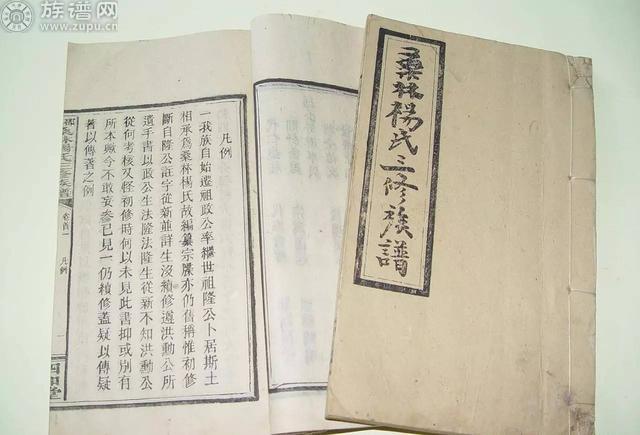 族谱网
www.zupu.cn
桑林楊氏三修族譜
凡例
一我族自始遷祖政公率繼世祖隆公卜居斯土
相承爲桑林楊氏故編纂宗牒亦仍舊稱惟初修
斷自隆公註字從新並詳生沒續修遵洪勳公所
遺手書以政公生法隆法隆生從新不知洪勳公
從何考核又怪初修時何以未見此書抑或別有
所本職今不敢妄參已見一仍續修蓋疑以傳疑
著以傳著之例
卷首一
凡例
一